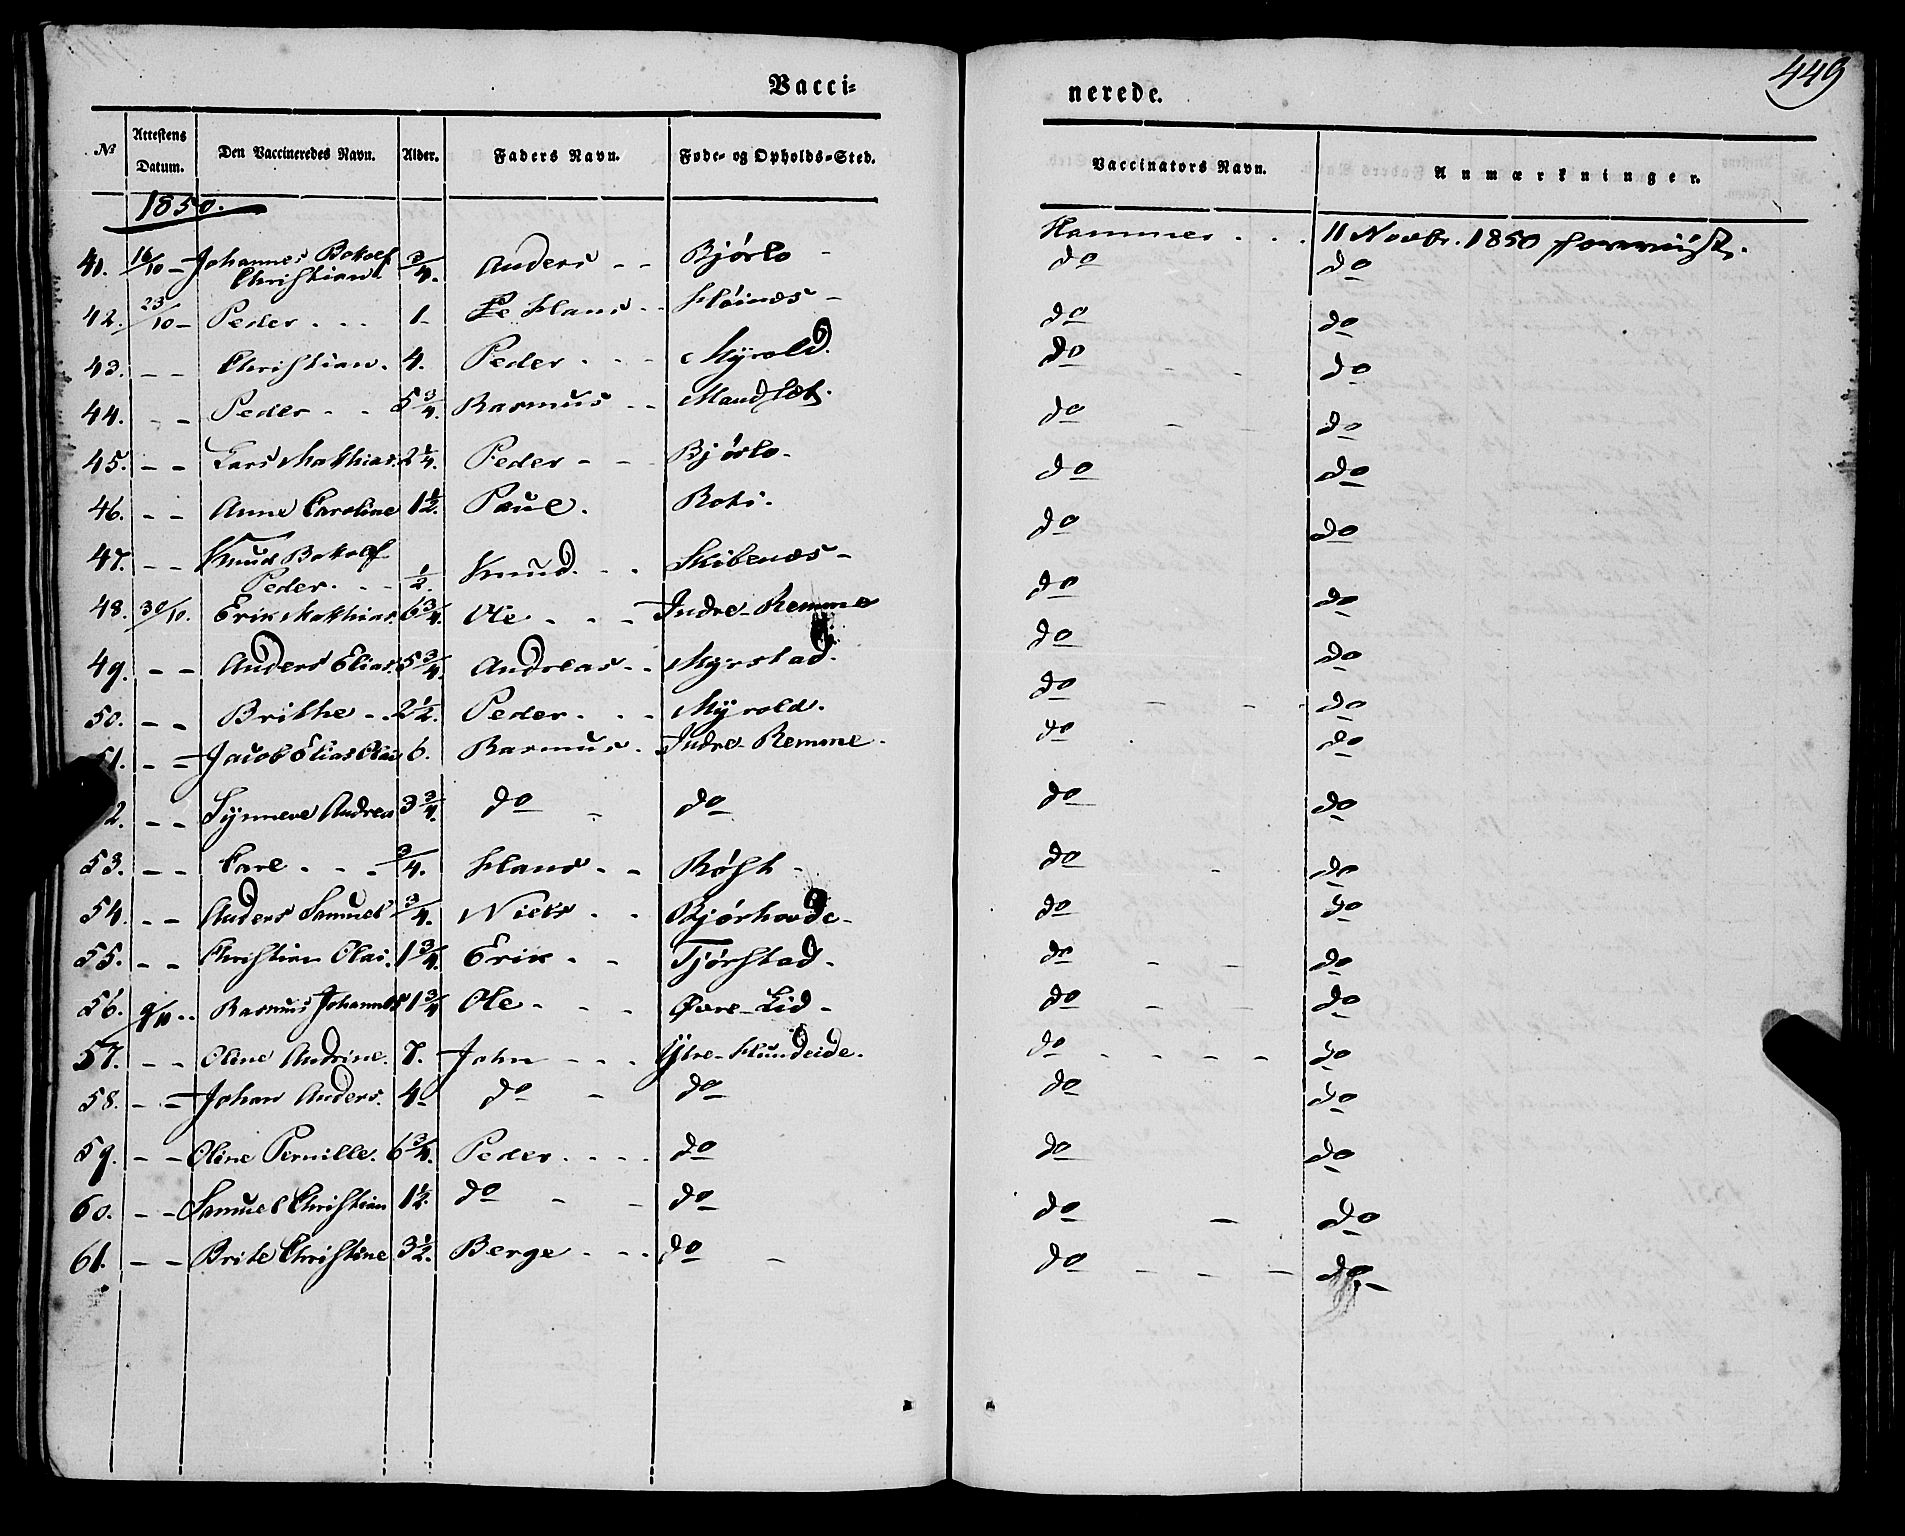 449
Vacci-
nerede.
№ Attestens Datum. Den Vaccineredes Navn. Alder. Faders Navn. Føde- og Opholds-Sted. Vaccinators Navn. Anmærkninger.
1850.
41. 16/10 - Johannes Christian 3/4. Anders - - Bjørlo - Hammer . . . 11 Novbr. 1850
do do
42. 23/10 - Peder . . . 1 - Hans - - Høinæs - do do
43. - - Christian. 4. Peder . - - Myrold. do do
44. - - Peder - - 5 3/4. Rasmus - - do do
45. - - Lars Mathias. 2 1/4. Peder - - Bjørlo - do do
46. - - Anne Caroline 1 1/2. Paul. Roti. do do
47. - - Knud
Peder. - - 1/2. Knud. - . Skibenæs - do do
48. 30/10. Erik Mathias. 6 3/4. Ole - - - Indre-Remme do do
49. - - Anders Elias. 5 3/4. Andreas - - Myrstad. do do
50. - - Brithe - . 2 1/2. Peder. . - Myrold. do do
51. - - Jacob Elias Olai 6. Rasmus. - Indre-Remme - do do
2. - - Synneve Andrea 3 3/4. do - do do do
53. - - Carl - - - 3/4. Hans - - do do
54. - - Anders Samuel 3/4. Niels - - Bjørhovde - do do
55. - - Christian Olai. 1 3/4. Erik - - Tjørstad - do do
56. 9/10 - - Rasmus Johannes 1 3/4 Ole - - - Øvre-Lid - do do
57. - - Oline Andrine. 7. John - - - Ytre-Hundeide. do - - - - do
58. - - Johan Anders. 4 - do - do do do
59. - - Oline Pernille. 6 3/4. Peder . - - - do do do
60. - - Samuel Christian 1 1/2. do - - do do - do
61. - - Brite Christine 3 1/2. Berge - - - do - do - - - do -